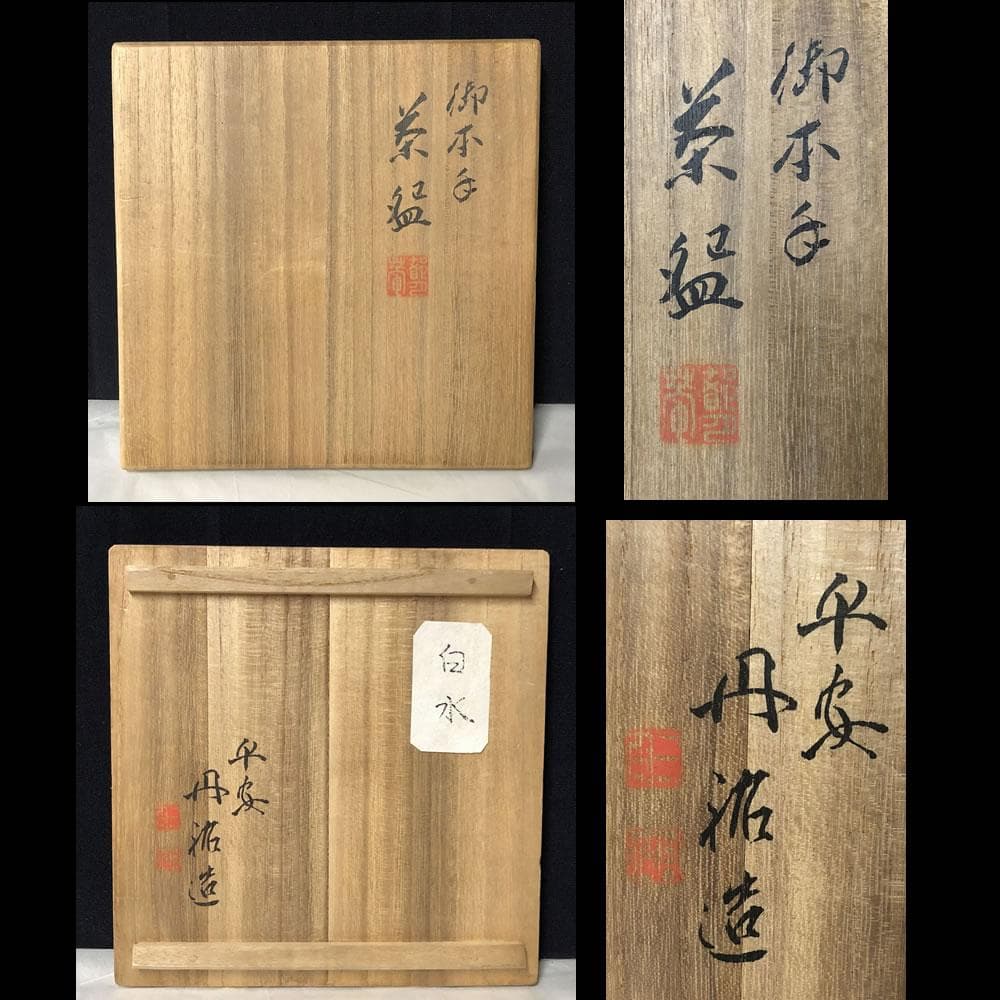 御本手
茶盌
御本手
茶盌
白水
平安
丹祐造
平安
丹祐造